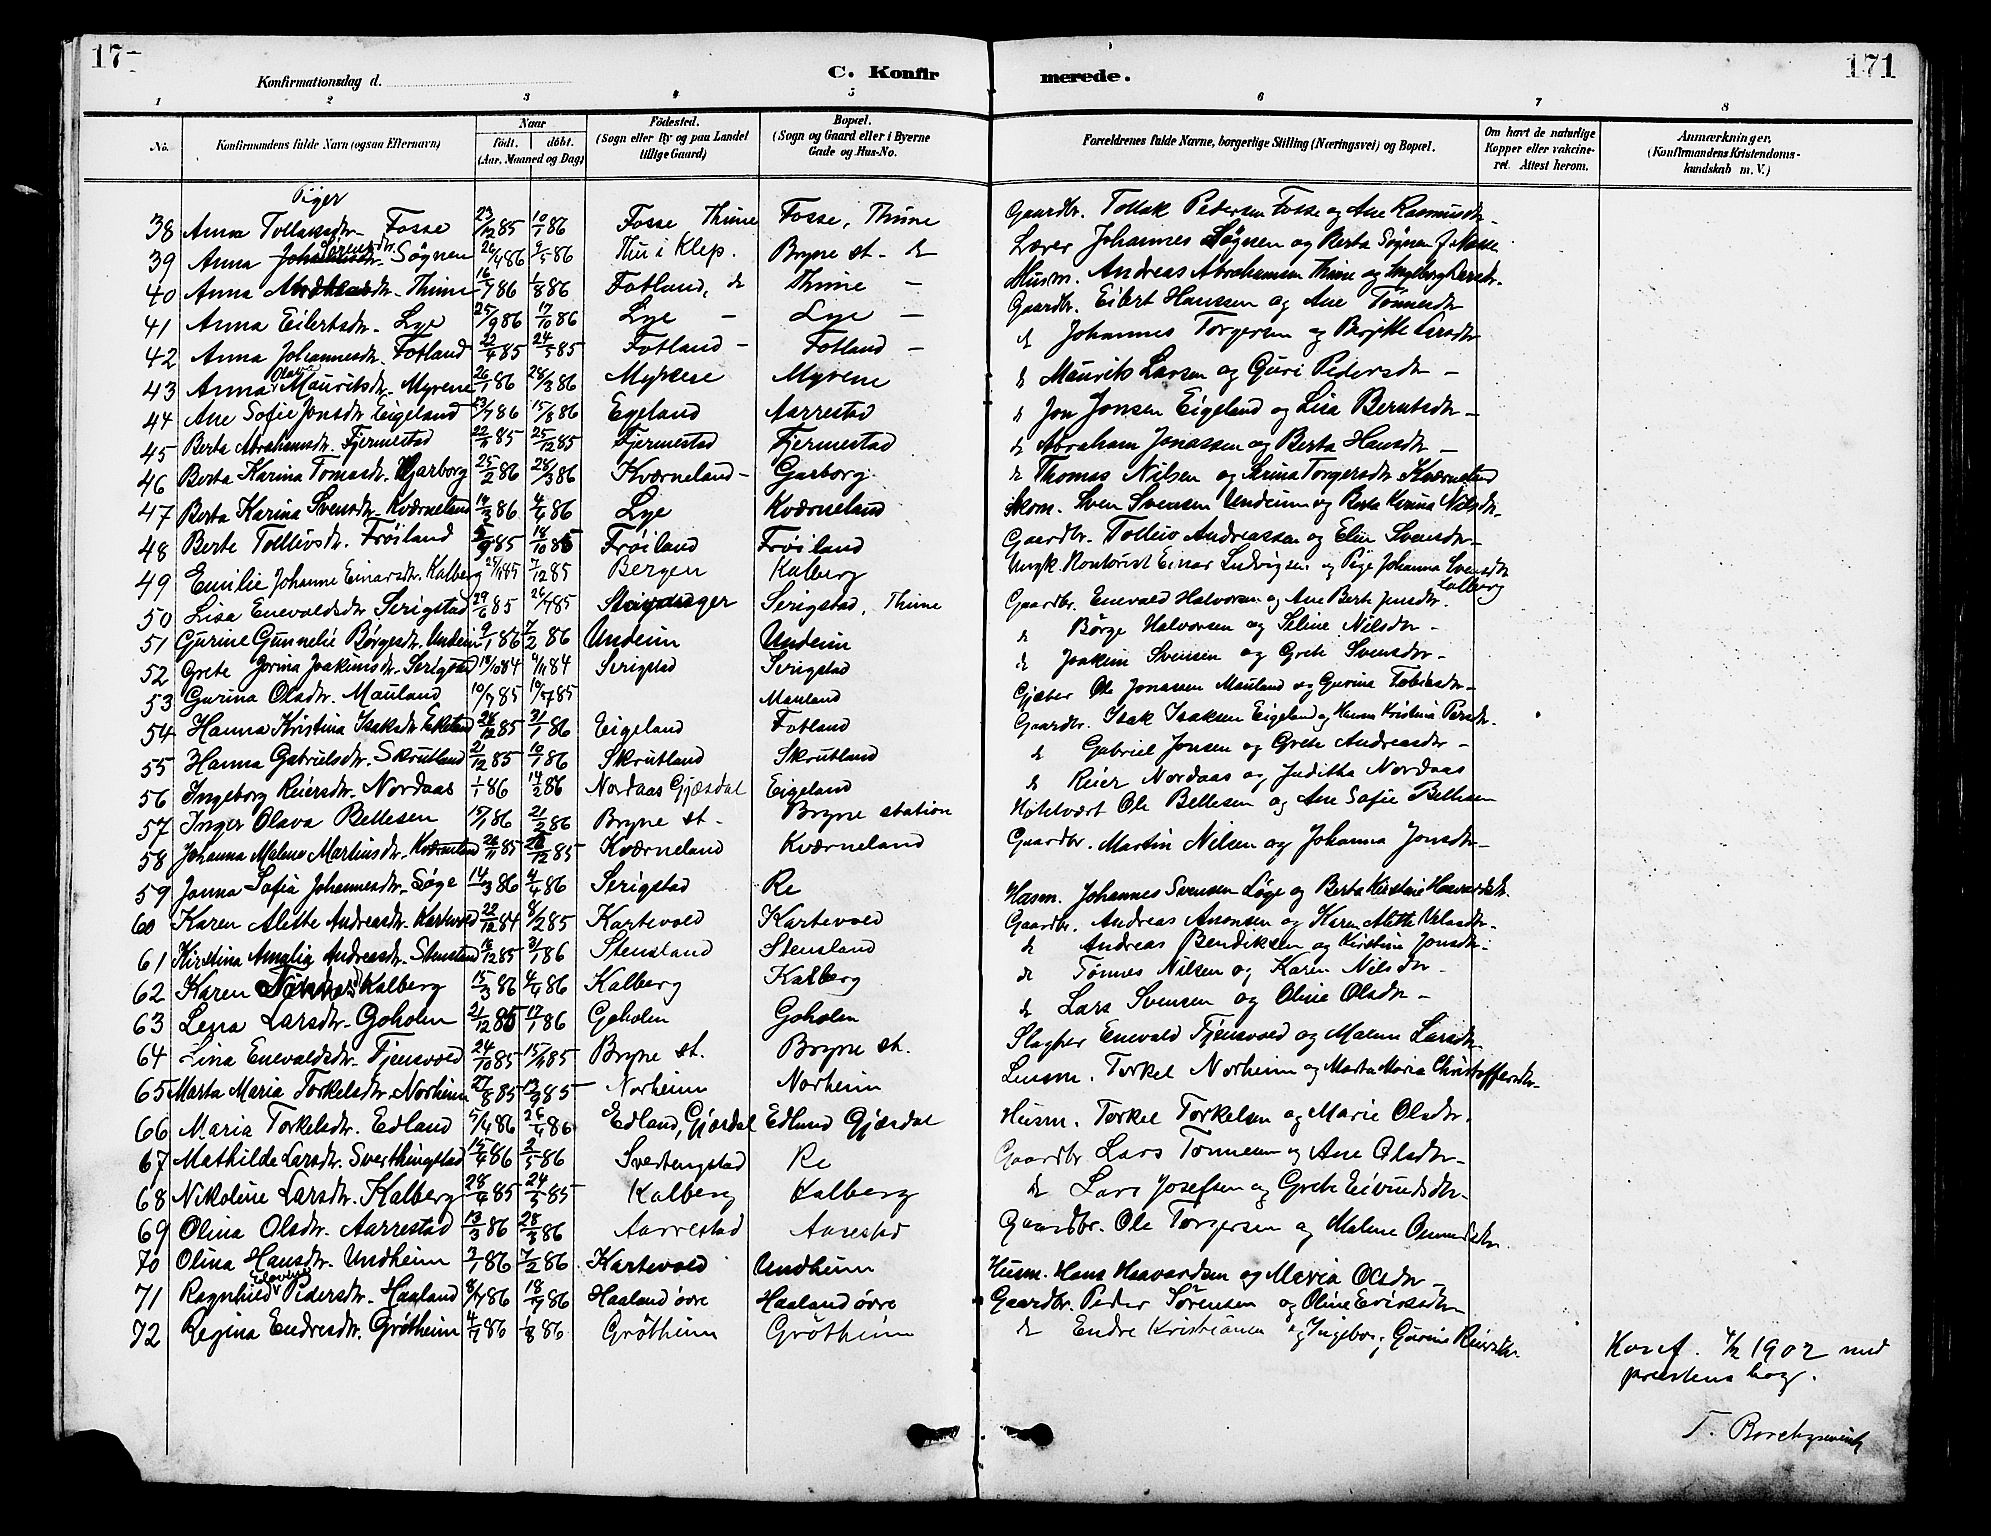 17
171
C. Konfirmerede.
Konfirmationsdag d.
1 2 3 4 5 6 7 8
No. Konfirmandens fulde Navn (ogsaa Efternavn) Naar födt. döbt. (Aar, Maaned og Dag) Födested. (Sogn eller By og paa Landet tillige Gaard) Bopæl. (Sogn og Gaard eller i Byerne Gade og Hus-No. Forældrenes fulde Navne, borgerlige Stilling (Næringsvei) og Bopæl. Om havt de naturlige Kopper eller vakcineret. Attest herom. Anmærkninger, (Konfirmandens Kristendomskundskab m. V.)
Piger
38 Anna Tollaksdtr. Fosse 23/12 85 10/1 86 Fosse Thime Fosse, Thime Gaardbr. Tollak Pedersen Fosse og Ane Rasmusdtr.
39 Anna Søgnen 26/4 86 9/5 86 Thu i Klep. Bryne st. d Lærer Johannes Søgnen og Berta Søgnen
40 Anna Andreasdtr. Thime 16/7 86 1/8 86 Fotland, d Thime - Husm. Andreas Abrahamsen Thime og Ingeborg Larsdtr.
41 Anna Eilertsdtr. Lye 25/9 86 17/10 86 Lye - Lye - Gaardbr. Eilert Hanssen og Ane Tønnesdtr
42 Anna Johannesdtr. Fotland 22/4 85 24/5 85 Fotland - Fotland - d Johannes Torgersen og Birgitte Larsdtr
43 Anna Olava Mauritsdtr. Myrene 26/1 86 28/3 86 Myrene Myrene d Maurits Larsen og Guri Pedersdtr -
44 Ane Sofie Jonsdtr. Eigeland 23/7 86 15/8 86 Egeland Aarrestad d Jon Jonsen Eigeland og Lisa Berntsdtr -
45 Berta Abrahamsdtr. Fjermestad 22/11 85 25/12 85 Fjermestad Fjermestad d Abraham Jonassen og Berta Hansdtr -
46 Berta Karina Tomasdtr. Garborg 25/2 86 28/3 86 Kværneland - Garborg d Thomas Nilsen og Serina Torgersdtr Kværneland
47 Berta Karina Svensdtr. Kværneland 14/3 86 4/4 86 Lye Kværneland Skom. Sven Svensen Undeim og Berta Karina Nilsdtr.
48 Berte Tollevsdtr. Frøiland 5/9 85 18/10 85 Frøiland Frøiland Gaardbr. Tollev Andreassen og Elin Svensdtr -
49 Emilie Johanne Einarsdtr. Kalberg 25/11 85 7/12 85 Bergen Kalberg Ungk. Kontorist Einar Ludvigsen og Pige Johanna Svensdtr Kalberg
50 Lisa Enevaldsdtr Serigstad 29/6 85 26/7 85 Stavanger Serigstad, Thime Gaardbr. Enevald Halvorsen og Ane Berte Jensdtr.
51 Gurine Gunnelie Børgesdtr. Undeim 9/1 86 7/2 86 Undeim Undeim d Børge Halvorsen og Seline Nilsdtr -
52 Grete Gorina Joakimsdtr. Serigstad 18/10 84 9/11 84 Serigstad Serigstad d Joakim Svensen og Grete Svensdtr -
53 Gurina Olsdtr. Mauland 10/7 85 19/7 85 Mauland Gjæter Ole Jonassen Mauland og Gurina Tobiasdtr -
54 Hanna Kristina Isaksdtr. 28/12 85 31/1 86 Eigeland Fotland Gaardbr. Isak Isaksen Eigeland og Hanna Kristina Persdtr.
55 Hanna Gabrielsdtr. Skrutland 21/12 85 10/1 86 Skrutland Skrutland d Gabriel Jonsen og Grete Andreasdtr -
56 Ingeborg Reiersdtr. Nordaas 1/1 86 14/2 86 Nordaas Gjæsdal Eigeland d Reier Nordaas og Juditha Nordaas
57 Inger Olava Bellesen 15/1 86 21/2 86 Bryne st. Bryne station Hotelvært Ole Bellesen og Ane Sofie Bellesen
58 Johanna Malene Martinsdtr. Kværneland 26/11 85 26/12 85 Kværneland Kværneland Gaardbr. Martin Nilsen og Johanna Jonsdtr -
59 Janna Sofia Johannesdtr. Søge 14/3 86 4/4 86 Serigstad Re Husm. Johannes Svensen Søge og Berta Kirstine Haavardsdtr.
60 Karen Alette Andreasdtr. Kartevold 22/12 84 8/2 85 Kartevold Kartevold Gaardbr. Andreas Aronsen og Karen Alette
61 Kirstina Amalia Andreasdtr. Stensland 16/12 85 31/1 86 Stensland Stensland d Andreas Bendiksen og Kirstina Jonsdtr.
62 Karen Kalberg 15/3 86 4/4 86 Kalberg Kalberg d Tønnes Nilsen og Karen Nilsdtr -
63 Lena Larsdtr. Goholen 21/12 85 17/1 86 Goholen Goholen d Lars Svensen og Oline Olsdtr -
64 Lina Enevaldsdtr. Tjensvold 24/10 85 15/11 85 Bryne st. Bryne st. Slagter Enevald Tjensvold og Malene Larsdtr.
65 Marta Maria Torkelsdtr. Norheim 27/8 85 13/9 85 Norheim Norheim Lensm. Torkel Norheim og Marta Maria Christoffersdtr.
66 Maria Torkelsdtr. Edland 5/4 86 26/4 86 Edland, Gjæsdal Edland Gjæsdal Husm. Torkel Torkelsen og Marie Olsdtr.
67 Mathilde Larsdtr. Sverthingstad 15/4 86 2/5 86 Svertengstad Re Gaardbr Lars Tønnesen og Ane Olsdtr -
68 Nikoline Larsdtr. Kalberg 28/4 85 24/5 85 Kalberg Kalberg d Lars Josefsen og Grete Eivindsdtr.
69 Olina Olsdtr. Aarrestad 13/3 86 28/3 86 Aarrestad Aarestad Gaardbr. Ole Torgersen og Malene
70 Olina Hansdtr. Undheim 3/1 86 7/2 86 Kartevold Undheim Husm. Hans Haavardsen og Maria Olsdtr -
71 Ragnhild Pedersdtr. Haaland 8/7 86 18/7 86 Haaland øvre Haaland øvre Gaardbr. Peder Sørensen og Oline Eriksdtr -
72 Regina Endresdtr. Grötheim 4/7 86 1/8 86 Grötheim Grötheim d Endre Kristiansen og Ingebor; Gurine Reiersdtr.
Konf. 4/2 1902 med
prestens bog.
T.